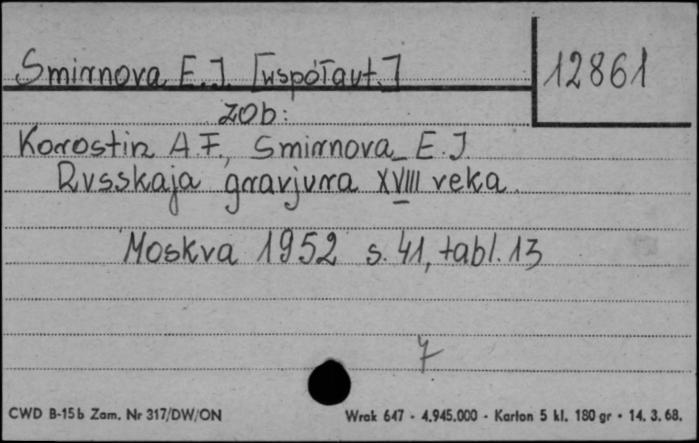 Smirnova E. J. [współaut.]
12861
zob:
Korostin A F., Smirnova E. J.
Russkaja gravjura XVIII veka.
Moskva 1952 s. 41, tabl. 13
7
CWD B-15b Zam. Nr 317/DW/ON
Wrak 647 - 4.945.000 - Karton 5 kl. 180 gr • 14. 3. 68.